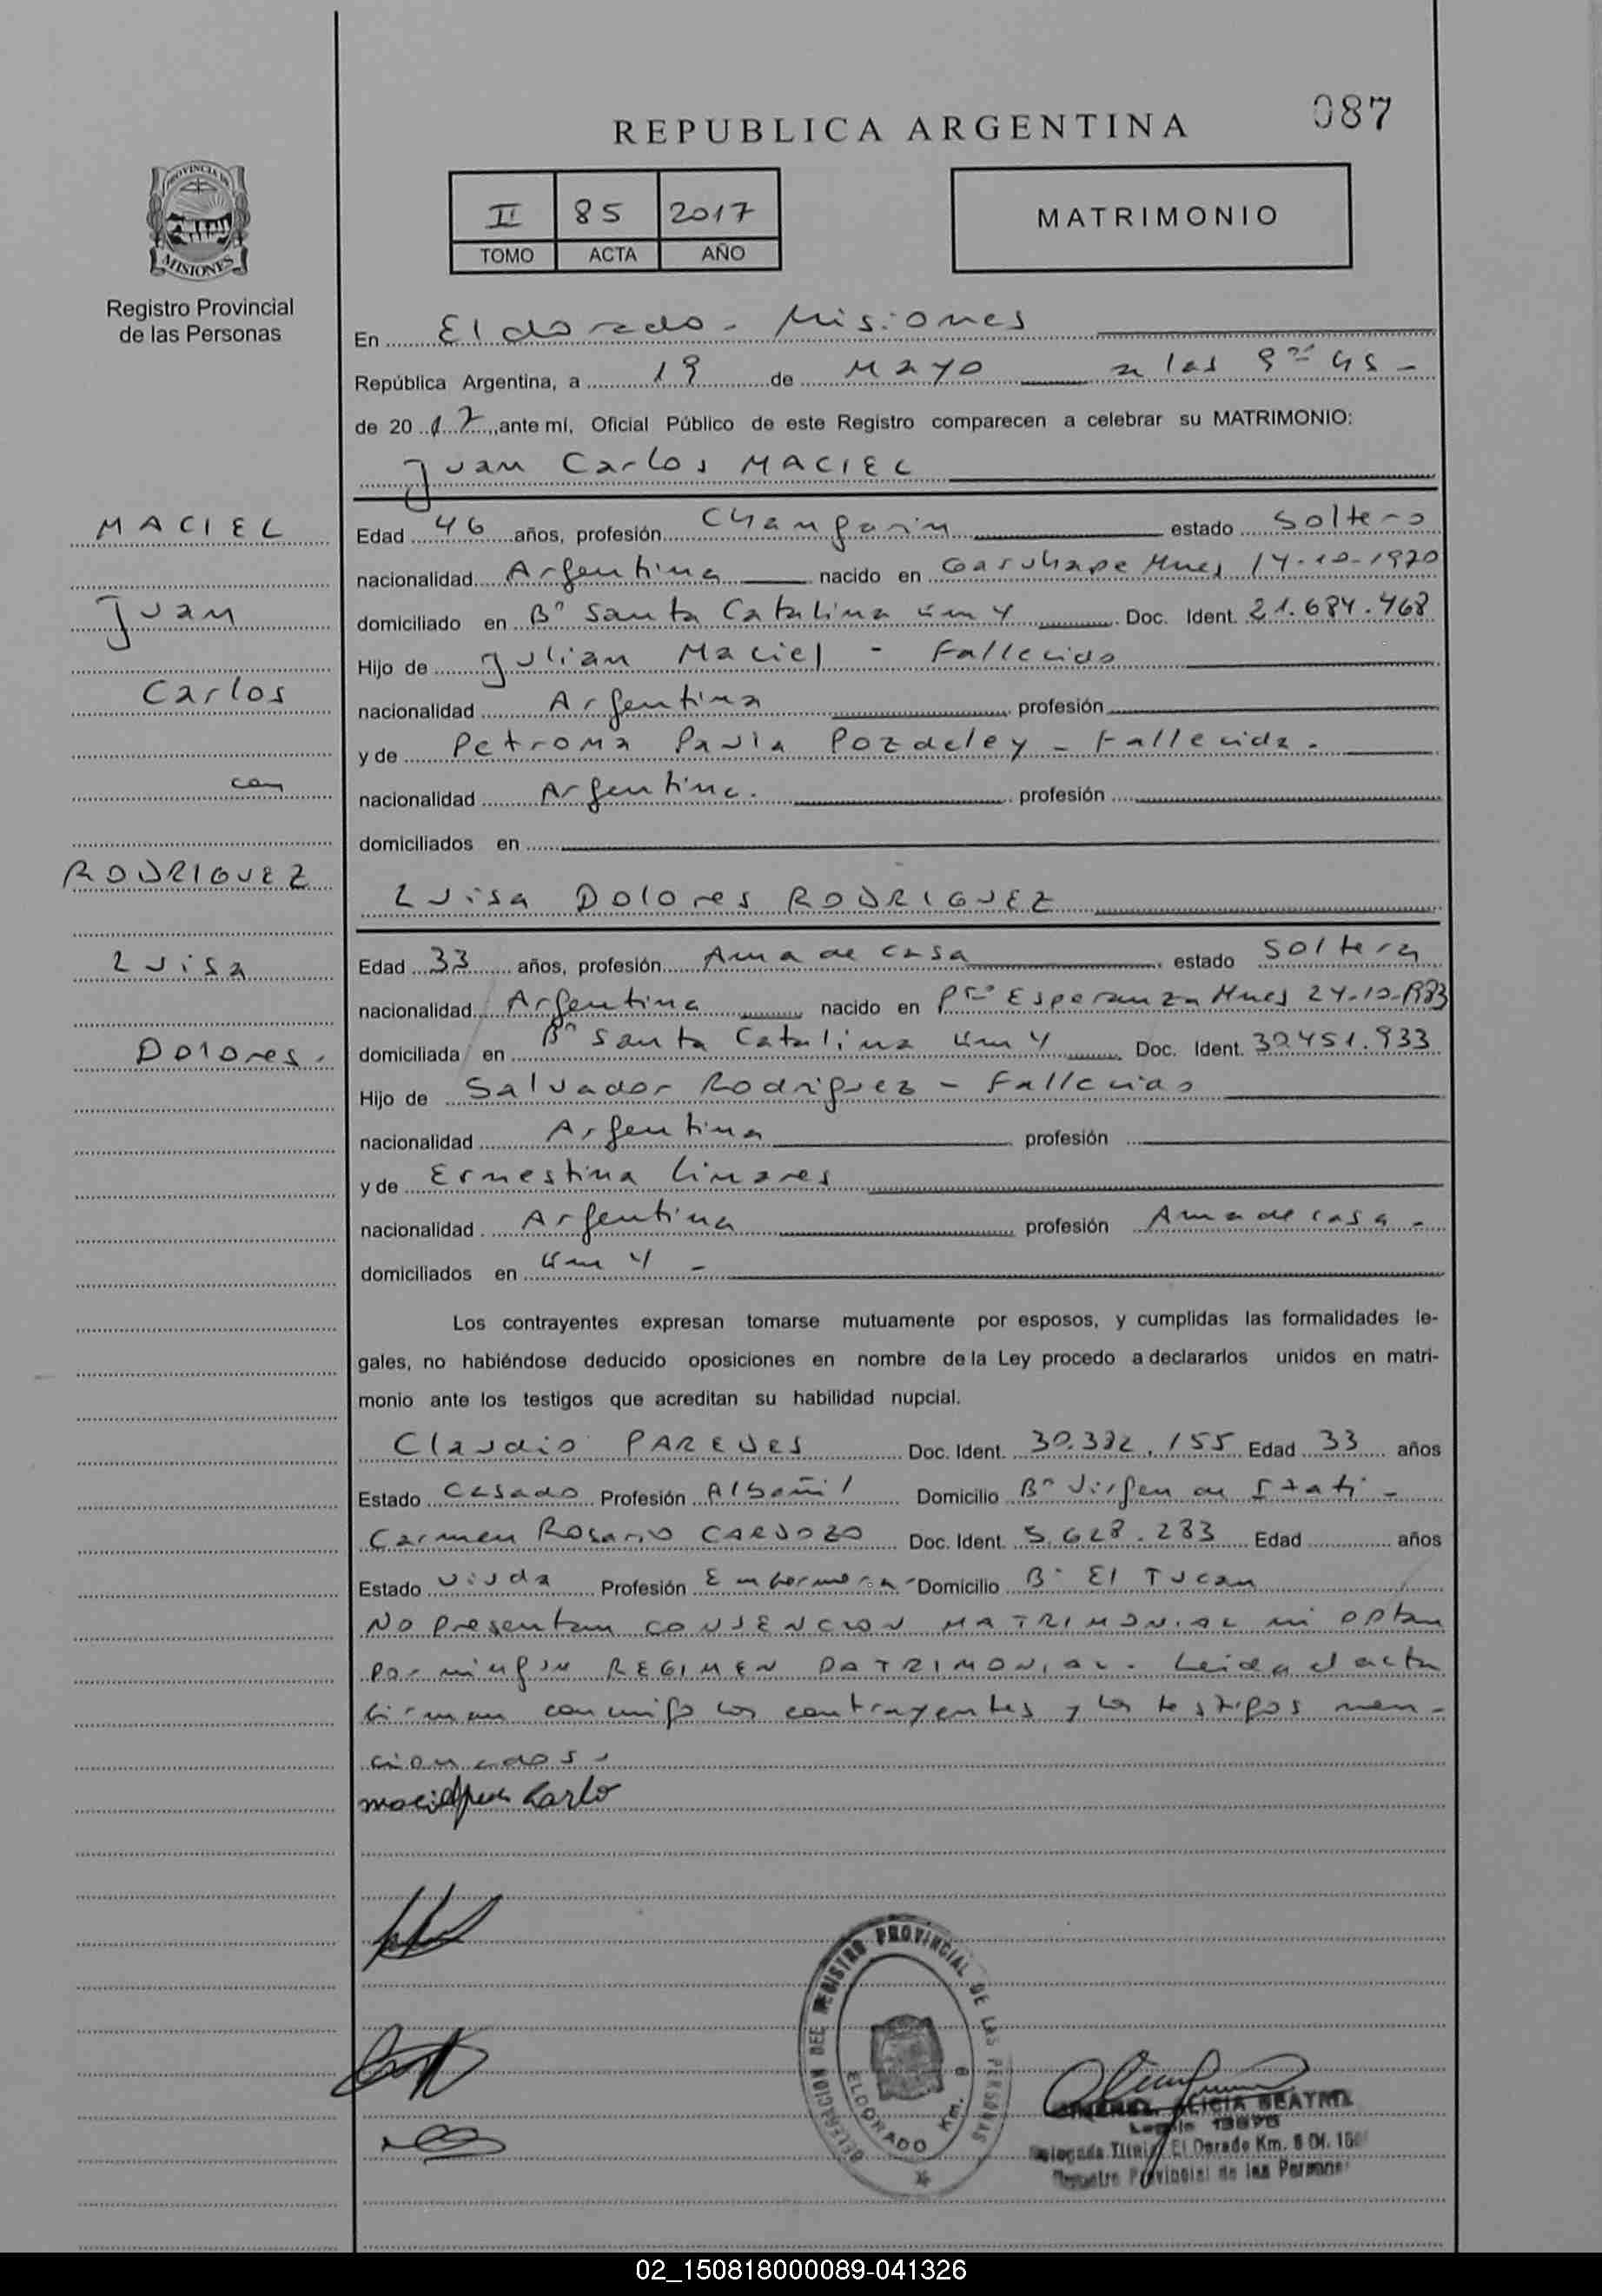 087
REPUBLICA ARGENTINA
II 85 2017
TOMO ACTA AÑO
MATRIMONIO
PROVINCIA DE
MISIONES
Registro Provincial
de las Personas
En Eldorado - Misiones
República Argentina, a 19 de Mayo a las 9 hs -
de 2017, ante mí, Oficial Público de este Registro comparecen a celebrar su MATRIMONIO:
Juan Carlos MACIEL
MACIEL
Juan
Carlos
con
RODRIGUEZ
Luisa
Dolores.
Edad 46 años, profesión Changarin estado Soltero
nacionalidad Argentina nacido en Garuhape Mnes 14-10-1970
domiciliado en Bº Santa Catalina Km 4 Doc. Ident. 21.684.468
Hijo de Julian Maciel - Fallecido
nacionalidad Argentina profesión
y de Petrona Paula Pozdeley - Fallecida.
nacionalidad Argentina. profesión
domiciliados en
Luisa Dolores RODRIGUEZ
Edad 33 años, profesión Ama de casa estado Soltera
nacionalidad Argentina nacido en Pto Esperanza Mnes 24-10-1983
domiciliada en Bº Santa Catalina Km 4 Doc. Ident. 30.451.933
Hijo de Salvador Rodriguez - Fallecido
nacionalidad Argentina profesión
y de Ernestina Linares
nacionalidad Argentina profesión Ama de casa -
domiciliados en Km 4 -
Los contrayentes expresan tomarse mutuamente por esposos, y cumplidas las formalidades le-
gales, no habiéndose deducido oposiciones en nombre de la Ley procedo a declararlos unidos en matri-
monio ante los testigos que acreditan su habilidad nupcial.
Claudio PAREDES Doc. Ident. 30.392.155 Edad 33 años
Estado Casado Profesión Albañil Domicilio Bº Virgen de Itati -
Carmen Rosario CARDOZO Doc. Ident. 5.628.283 Edad años
Estado Viuda Profesión Enfermera - Domicilio Bº El Tucan
No presentan CONVENCION MATRIMONIAL ni optan
por ningun REGIMEN PATRIMONIAL. Leida el acta
firman conmigo los contrayentes y los testigos men-
cionados.
Maciel Juan Carlo
DELEGACION DEL REGISTRO PROVINCIAL DE LAS PERSONAS
ELDORADO Km. 8
ALICIA BEATRIZ
Delegada Titular El Dorado Km. 8
Registro Provincial de las Personas
02_150818000089-041326